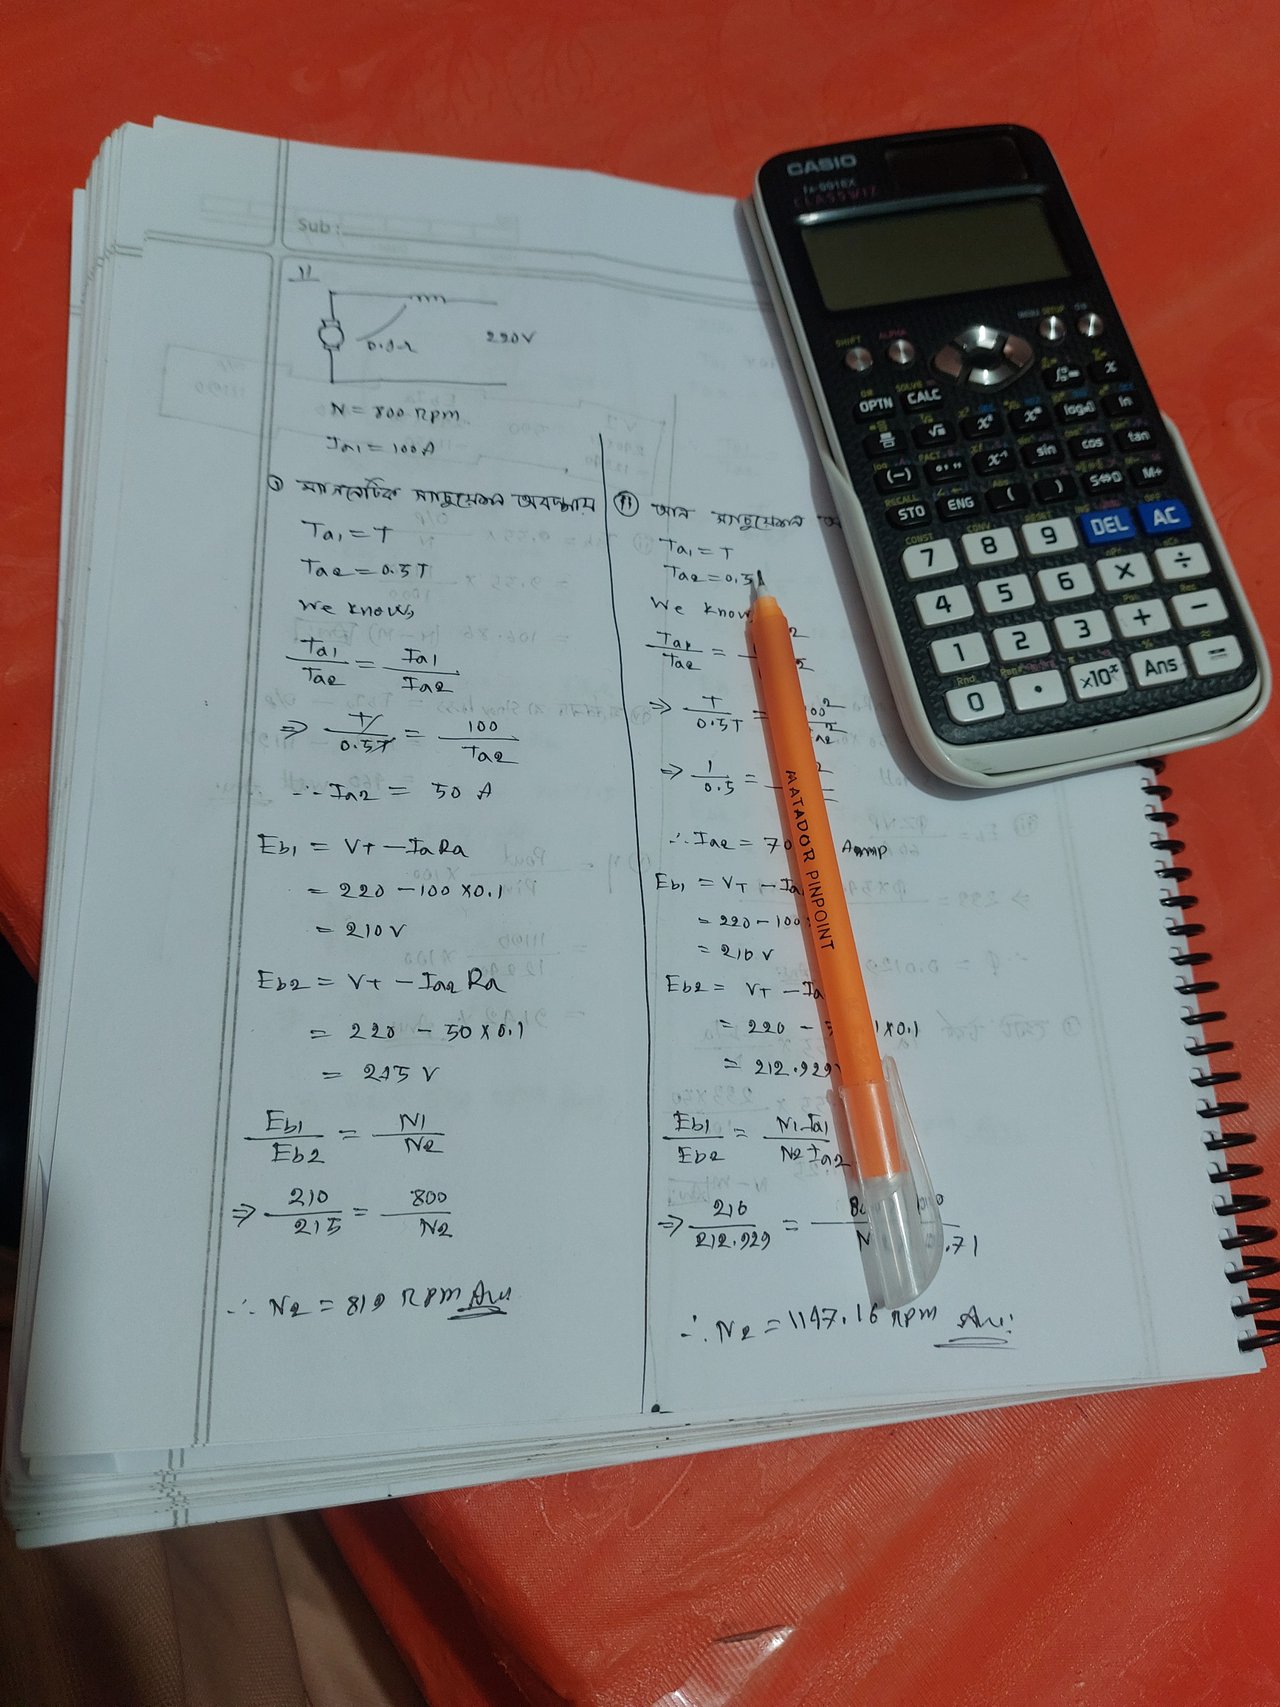 Sub :
11
0.1Ω
220V
N = 800 rpm
Ia1 = 100A
① ম্যাগনেটিক স্যাচুরেশন অবস্থায়
Ta1 = T
Ta2 = 0.5T
We know,
Ta1/Ta2 = Ia1/Ia2
⇒ T/0.5T = 100/Ia2
∴ Ia2 = 50 A
Eb1 = Vt − IaRa
= 220 − 100×0.1
= 210 V
Eb2 = Vt − Ia2 Ra
= 220 − 50×0.1
= 215 V
Eb1/Eb2 = N1/N2
⇒ 210/215 = 800/N2
∴ N2 = 819 rpm Ans:
⑪ আন স্যাচুরেশন
Ta1 = T
Ta2 = 0.5
We know
Ta1/Ta2 =
⇒ T/0.5T =
⇒ 1/0.5 =
∴ Ia2 = 70 Amp
Eb1 = VT − Ia
= 220 − 100
= 210 V
Eb2 = VT − Ia
= 220 − ×0.1
= 212.929
Eb1/Eb2 = N1 Ia1/N2 Ia2
⇒ 210/212.929 = .71
∴ N2 = 1147.16 rpm Ans:
MATADOR PINPOINT
CASIO
fx-991EX
CLASSWIZ
SHIFT ALPHA MENU SETUP ON
OPTN CALC x
sin cos tan
STO ENG ( ) S⇔D M+
7 8 9 DEL AC
4 5 6 × ÷
1 2 3 + −
0 . ×10ˣ Ans =